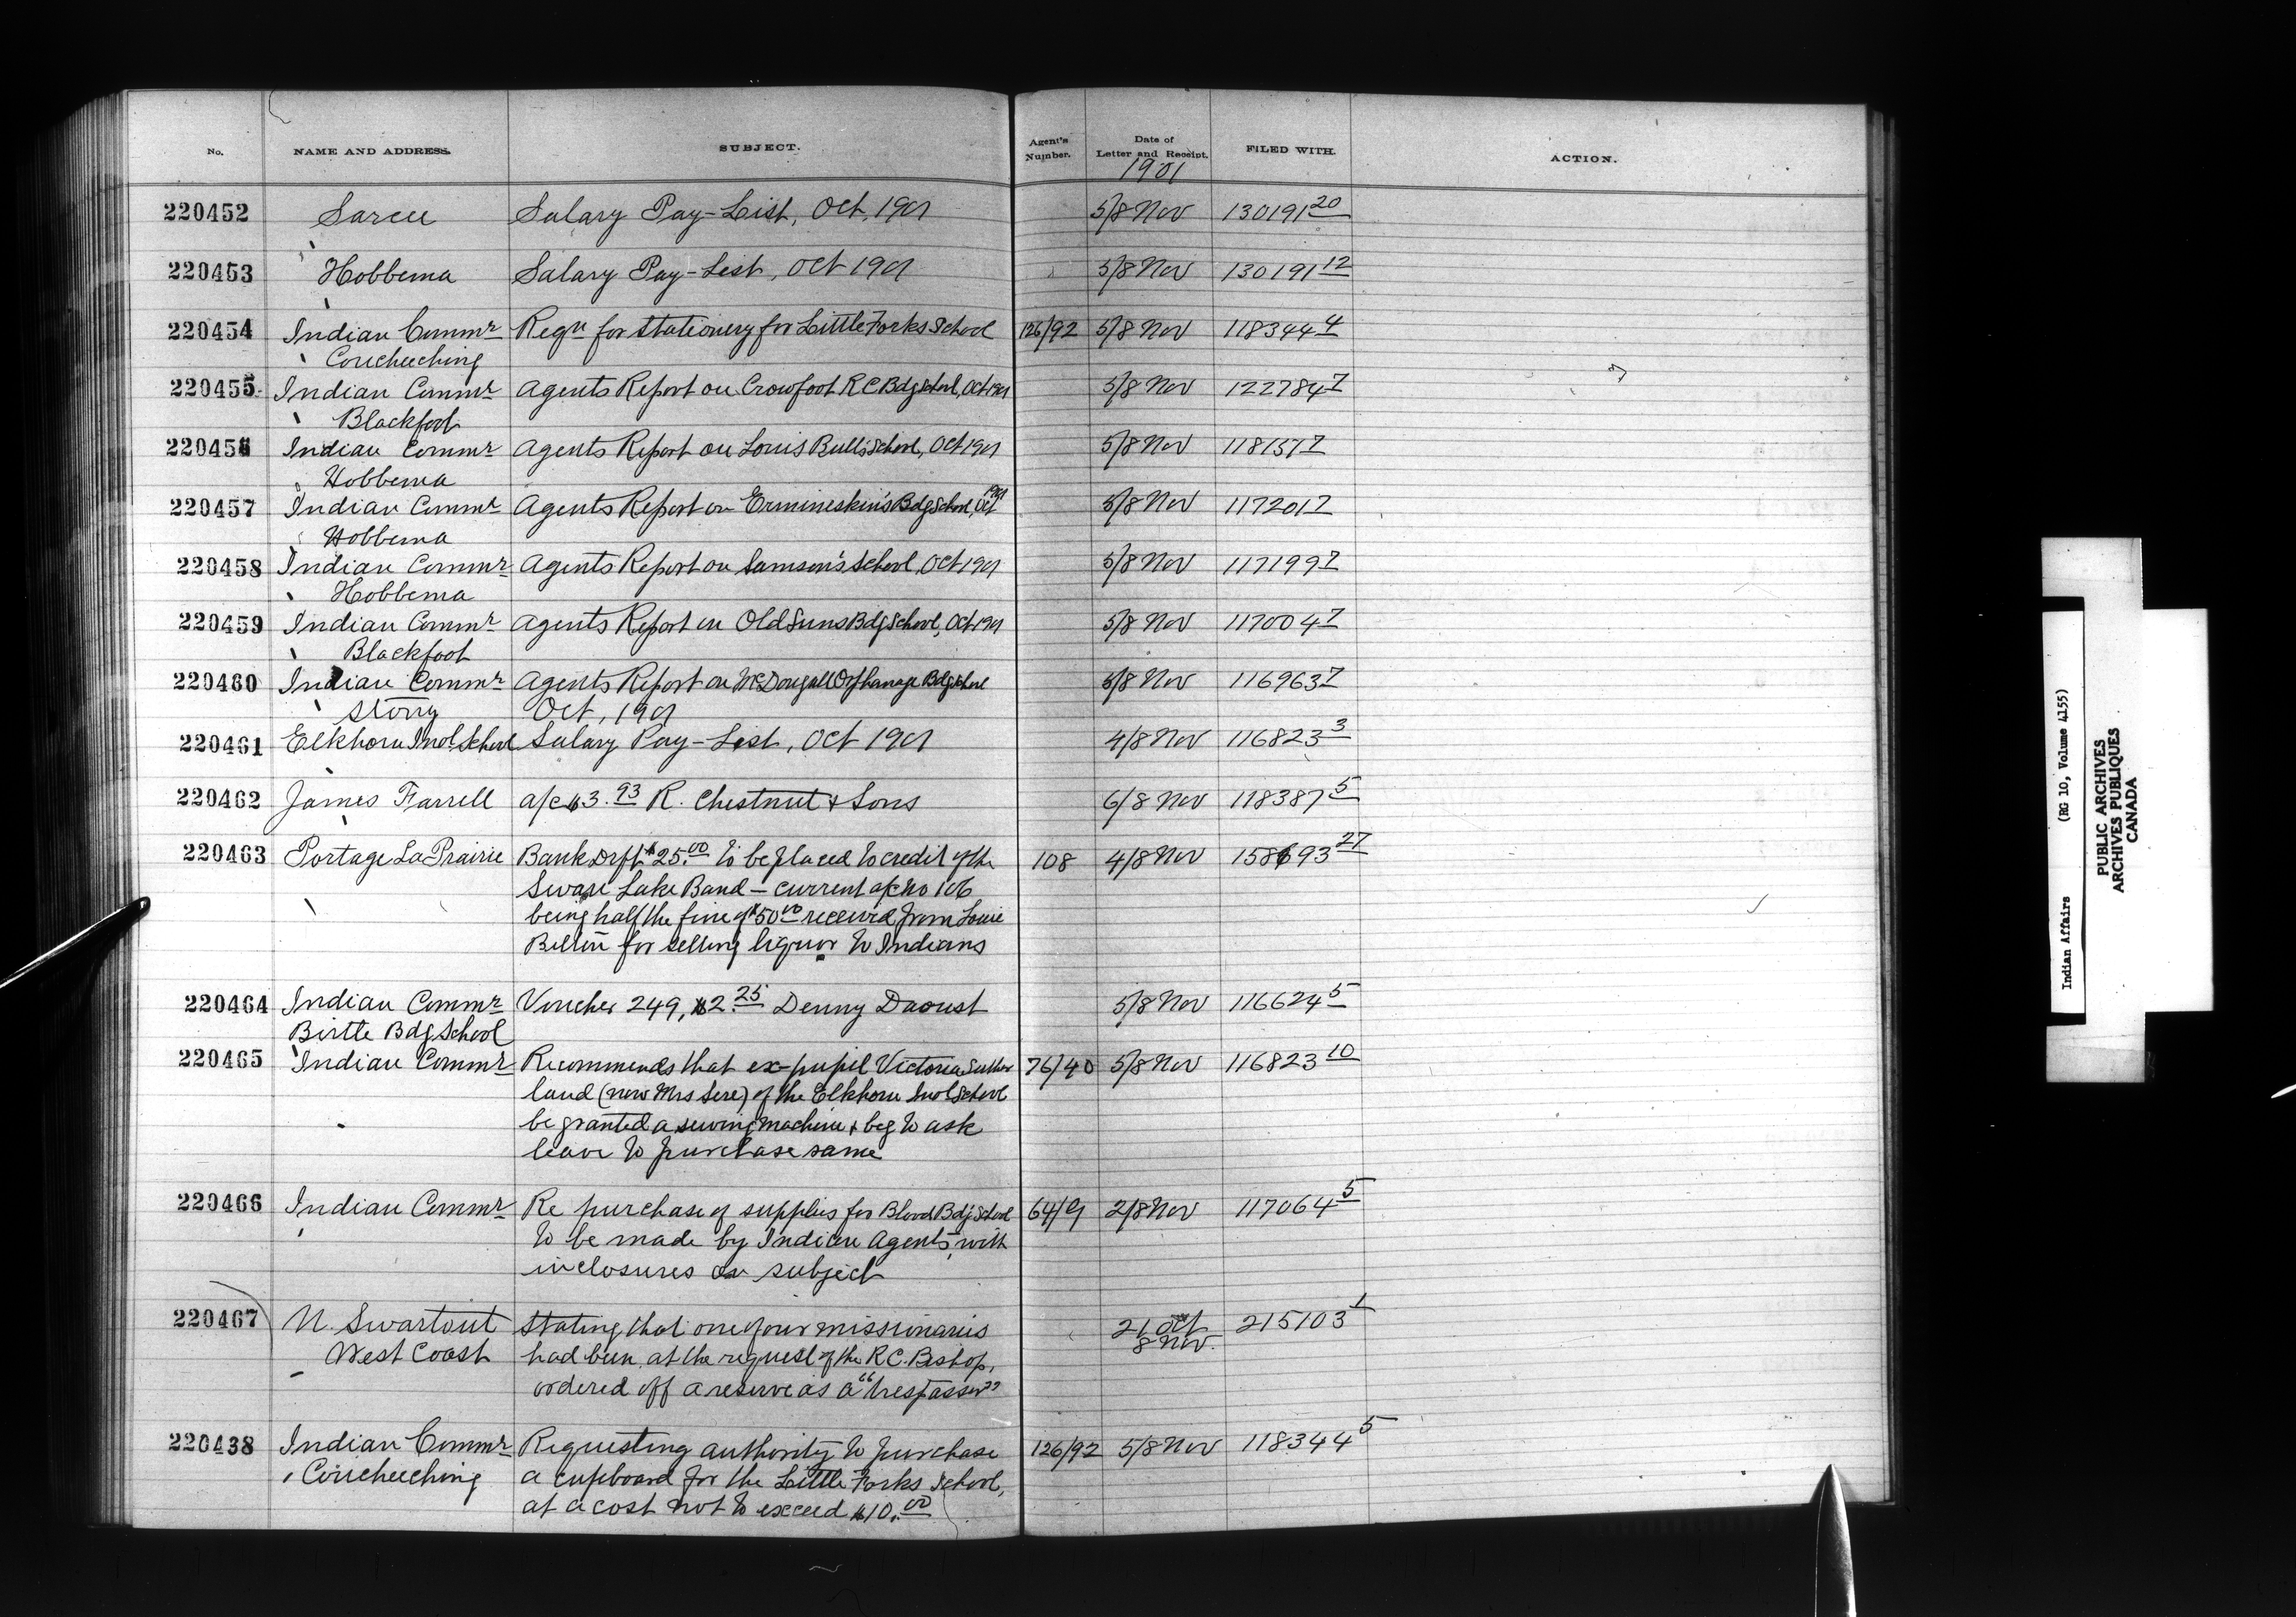 No. NAME AND ADDRESS. SUBJECT. Agent's Number. Date of Letter and Receipt. FILED WITH. ACTION.
1901
220452 Sarcee Salary Pay-List, Oct, 1901 5/8 Nov 130191 20
220453 Hobbema Salary Pay-List, Oct 1901 5/8 Nov 130191 12
220454 Indian Commr Reqn for Stationery for Little Forks School 126/92 5/8 Nov 118344 4
Coucheeching
220455 Indian Commr Agents Report on Crowfoot R C Bdg School, Oct 1901 5/8 Nov 122784 7
Blackfoot
220456 Indian Commr Agents Report on Louis Bulls School, Oct 1901 5/8 Nov 118157 7
Hobbema
220457 Indian Commr Agents Report on Ermineskin's Bdg School, Oct 1901 5/8 Nov 117201 7
Hobbema
220458 Indian Commr Agents Report on Samson's School, Oct 1901 5/8 Nov 117199 7
Hobbema
220459 Indian Commr Agents Report on Old Suns Bdg School, Oct 1901 5/8 Nov 117004 7
Blackfoot
220460 Indian Commr Agents Report on McDougall Orphanage Bdg School 5/8 Nov 116963 7
Stony Oct, 1901
220461 Elkhorn Indl School Salary Pay-List, Oct 1901 4/8 Nov 116823 3
220462 James Farrell a/c $3.93 R. Chestnut & Sons 6/8 Nov 118387 5
220463 Portage La Prairie Bank Drft $25.00 to be placed to credit of the 108 4/8 Nov 158693 27
Swan Lake Band - current a/c No 106
being half the fine of $50.00 received from Louie
for selling liquor to Indians
220464 Indian Commr Voucher 249, $2.25 Denny Daoust 5/8 Nov 116624 5
Birtle Bdg School
220465 Indian Commr Recommends that ex-pupil Victoria Suther 76/40 5/8 Nov 116823 10
land (now Mrs Sere) of the Elkhorn Indl School
be granted a sewing machine & beg to ask
leave to purchase same
220466 Indian Commr Re purchase of supplies for Blood Bdg School 64/9 2/8 Nov 117064 5
to be made by Indian Agents, with
inclosures on subject
220467 N. Swartout Stating that one of our missionaries 21 Oct 215103 1
8 Nov.
West Coast had been, at the request of the R C. Bishop,
ordered off a reserve as a "trespasser"
220438 Indian Commr Requesting authority to purchase 126/92 5/8 Nov 118344 5
Coucheeching a cupboard for the Little Forks School,
at a cost not to exceed $10.00
Indian Affairs (RG 10, Volume 4155)
PUBLIC ARCHIVES
ARCHIVES PUBLIQUES
CANADA